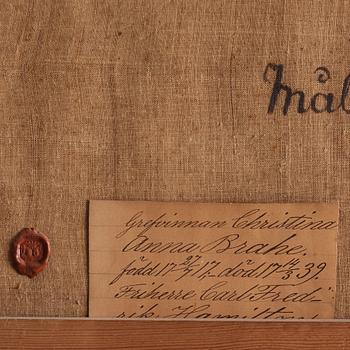 Mål
Grefvinnan Christina
Anna Brahe.
född 17 27/7 17. död 17 14/3 39.
Friherre Carl Fred-
rik Hamilton